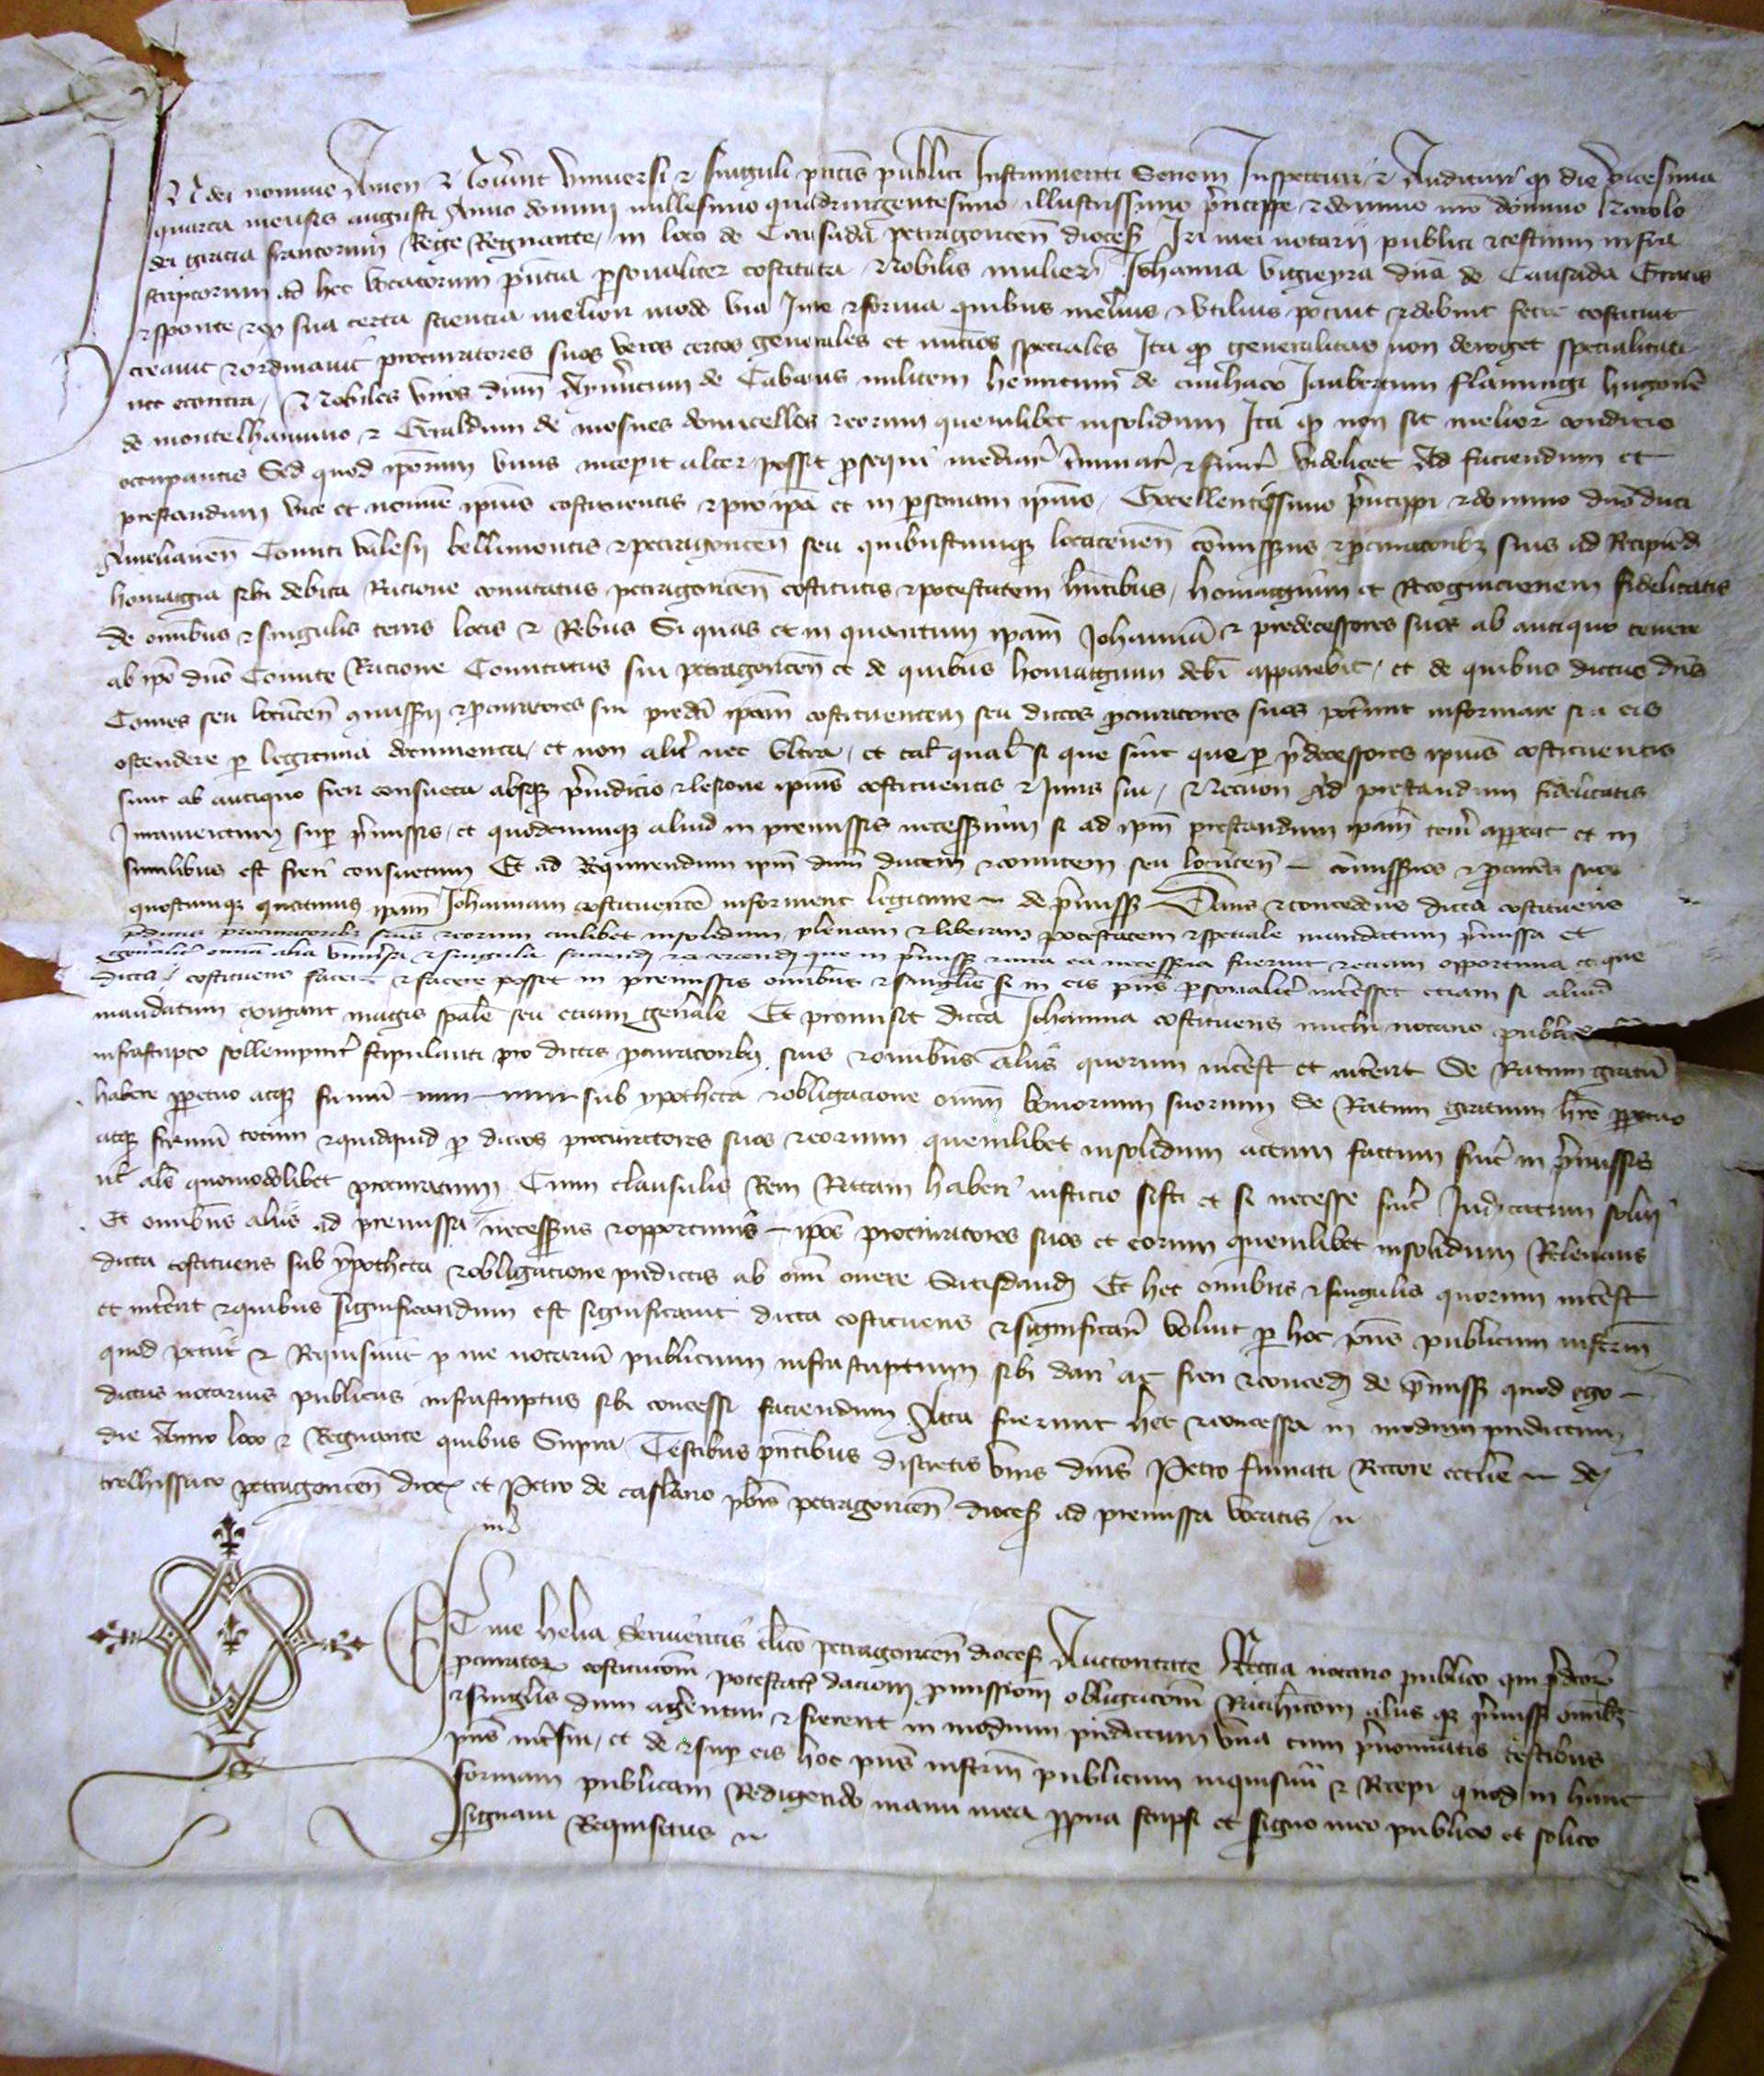 IN dei nomine Amen Noverint universi et singuli pntis publici Instrumenti Seriem Inspecturi et Audituri qd die vicesima
quarta mensis augusti Anno domini millesimo quadringentesimo illustrissimo principe et domino nro domino Karolo
dei gracia francorum Rege Regnante in loco de Causada petragoricen dioces In mei notarii publici et testium infra
scriptorum ad hec vocatorum pntia personaliter costituta Nobilis mulier Johanna vigieyra dna de Causada Gratis
et sponte et ex sua certa sciencia meliori modo via Jure et forma quibus melius et utilius potuit et debuit fecit costituit
creavit et ordinavit procuratores suos veros certos generales et nuncios speciales Ita qd generalitas non deroget specialitati
nec econtra Nobiles viros dnm Aymericum de Cabanis militem henricum de cumhaco Jaubertum flamingi hugonem
de montelhanino et Geraldum de mosnes domicellos et eorum quemlibet insolidum Ita qd non sit melior condicio
occupantis Sed quod ipsorum unus inceperit alter possit prosequi mediare terminare et finire videlicet Ad faciendum et
prestandum vice et nomine ipsius costituentis et pro ipsa et in personam ipsius Excellentissimo principi et domino dno duci
Aurelianen Comiti valesii bellimontis et petragoricen seu quibuscumque locatenen commissariis et procuratoribus suis ad Recipiend
homatgia sibi debita Racione comitatus petragoricen costitutis et potestatem hentibus homatgium et Recognicionem fidelitatis
de omnibus et singulis terris locis et Rebus Si quas et in quantum ipsam Johannam et predecessores suos ab antiquo tenere
ab ipso dno Comite Racione Comitatus sui petragoricen et de quibus homatgium deberi apparebit et de quibus dictus dns
Comes seu locumten commissarii et procuratores sui predicti ipsam costituentem seu dictos procuratores suos poterunt informare seu eis
ostendere per legitima documenta et non aliter nec ultra et tale quale si que sint que per predecessores ipsius costituentis
sunt ab antiquo fieri consueta absque preiudicio et lesione ipsius costituentis et Juris sui Necnon Ad prestandum fidelitatis
Juramentum super premissis et quodcumque aliud in premissis necessarium si ad ipsum prestandum ipsam teneri appareat et in
similibus est fieri consuetum Et ad Requirendum ipsum dnm ducem et comitem seu locumten commissarios et procuratores suos
quoscumque quatinus ipsam Johannam costituentem informent legitime de premissis Dans et concedens dicta costituens
predictis procuratoribus suis et eorum cuilibet insolidum plenam et liberam potestatem et speciale mandatum premissa et
generaliter omnia alia universa et singula faciendi et exercendi que in premissis et circa ea necessaria fuerint et eciam opportuna et que
dicta costituens faceret et facere posset in premissis omnibus et singulis si in eis pns personaliter interesset eciam si aliud
mandatum exigant magis spale seu eciam generale Et promisit dicta Johanna costituens michi notario publico
infrascripto sollempniter stipulanti pro dictis procuratoribus suis et omnibus aliis quorum interest et intererit Se Ratum gratum
habere perpetuo atque firmum sub ypotheca et obligacione omnium bonorum suorum Se Ratum gratum habere perpetuo
atque firmum totum et quidquid per dictos procuratores suos et eorum quemlibet insolidum actum factum fuerit in premissis
vel alias quomodolibet procuratum Cum clausulis Rem Ratam haberi iudicio sisti et si necesse fuerit Judicatum solvi
Et omnibus aliis ad premissa necessariis et opportunis ipsos procuratores suos et eorum quemlibet insolidum Relevans
dicta costituens sub ypotheca et obligacione predictis ab omni onere Satisdandi Et hec omnibus et singulis quorum interest
et intererit et quibus significandum est significavit dicta costituens et significari voluit per hoc pns publicum instrum
quod petiit et Requisivit per me notarium publicum infrascriptum sibi dari ac fieri et concedi de premissis quod ego
dictus notarius publicus infrascriptus sibi concessi faciendum Acta fuerunt hec et concessa in modum predictum
die Anno loco et Regnante quibus Supra Testibus pntibus discretis viris dnis Petro fumati Rectore ecclesie de
trelhissaco petragoricen dioc et Petro de caslario pbro petragoricen dioces ad premissa vocatis
Et me helia Servientis clico petragoricen dioces Auctoritate Regia notario publico qui predictorum
procuratorum costitucioni potestatis dacioni promissioni obligacioni Ratihabicioni aliisque premissis omnibus
et singulis dum agerentur et fierent in modum predictum una cum prenominatis testibus
pns interfui et de et super eis hoc pns instrum publicum inquisivi et Recepi quod in hanc
formam publicam Redigendo manu mea propria scripsi et signo meo publico et solito
signavi Requisitus